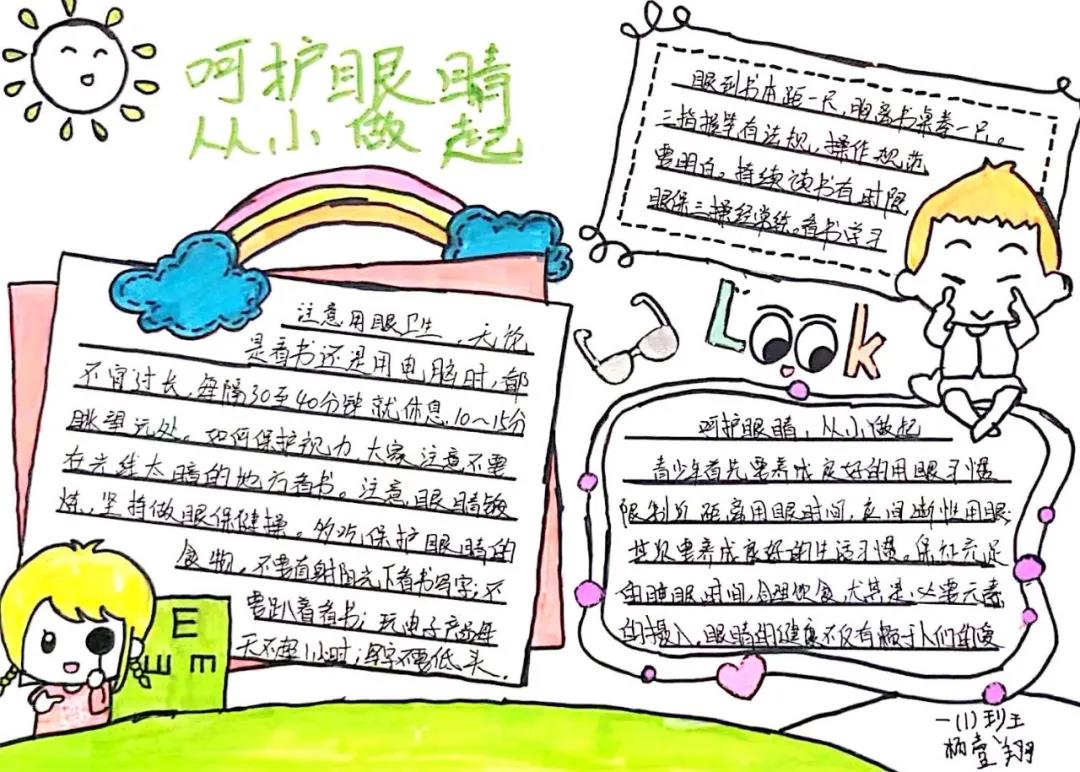 呵护眼睛
从小做起
眼到书本距一尺,胸离书桌拳一只。
三指握笔有法规,操作规范
要明白。持续读书有时限
眼保三操经常练。看书学习
Look
注意用眼卫生,无论
是看书还是用电脑时,都
不宜过长,每隔30至40分钟就休息10~15分
眺望远处。如何保护视力,大家注意不要
在光线太暗的地方看书。注意眼睛锻
炼,坚持做眼保健操。多吃保护眼睛的
食物,不要直射阳光下看书写字;不
要趴着看书;玩电子产品每
天不超1小时;写字不要低头.
呵护眼睛,从小做起
青少年首先要养成良好的用眼习惯
限制近距离用眼时间,应间断性用眼.
其次要养成良好的生活习惯。保证充足
的睡眠时间,合理饮食,尤其是必要元素
的摄入,眼睛的健康不仅有赖于人们的爱
E
E
m
一(1)班王
翔